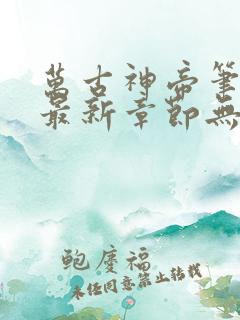 萬古神帝筆
最新章節無
鲍廑福
未经同意禁止转载